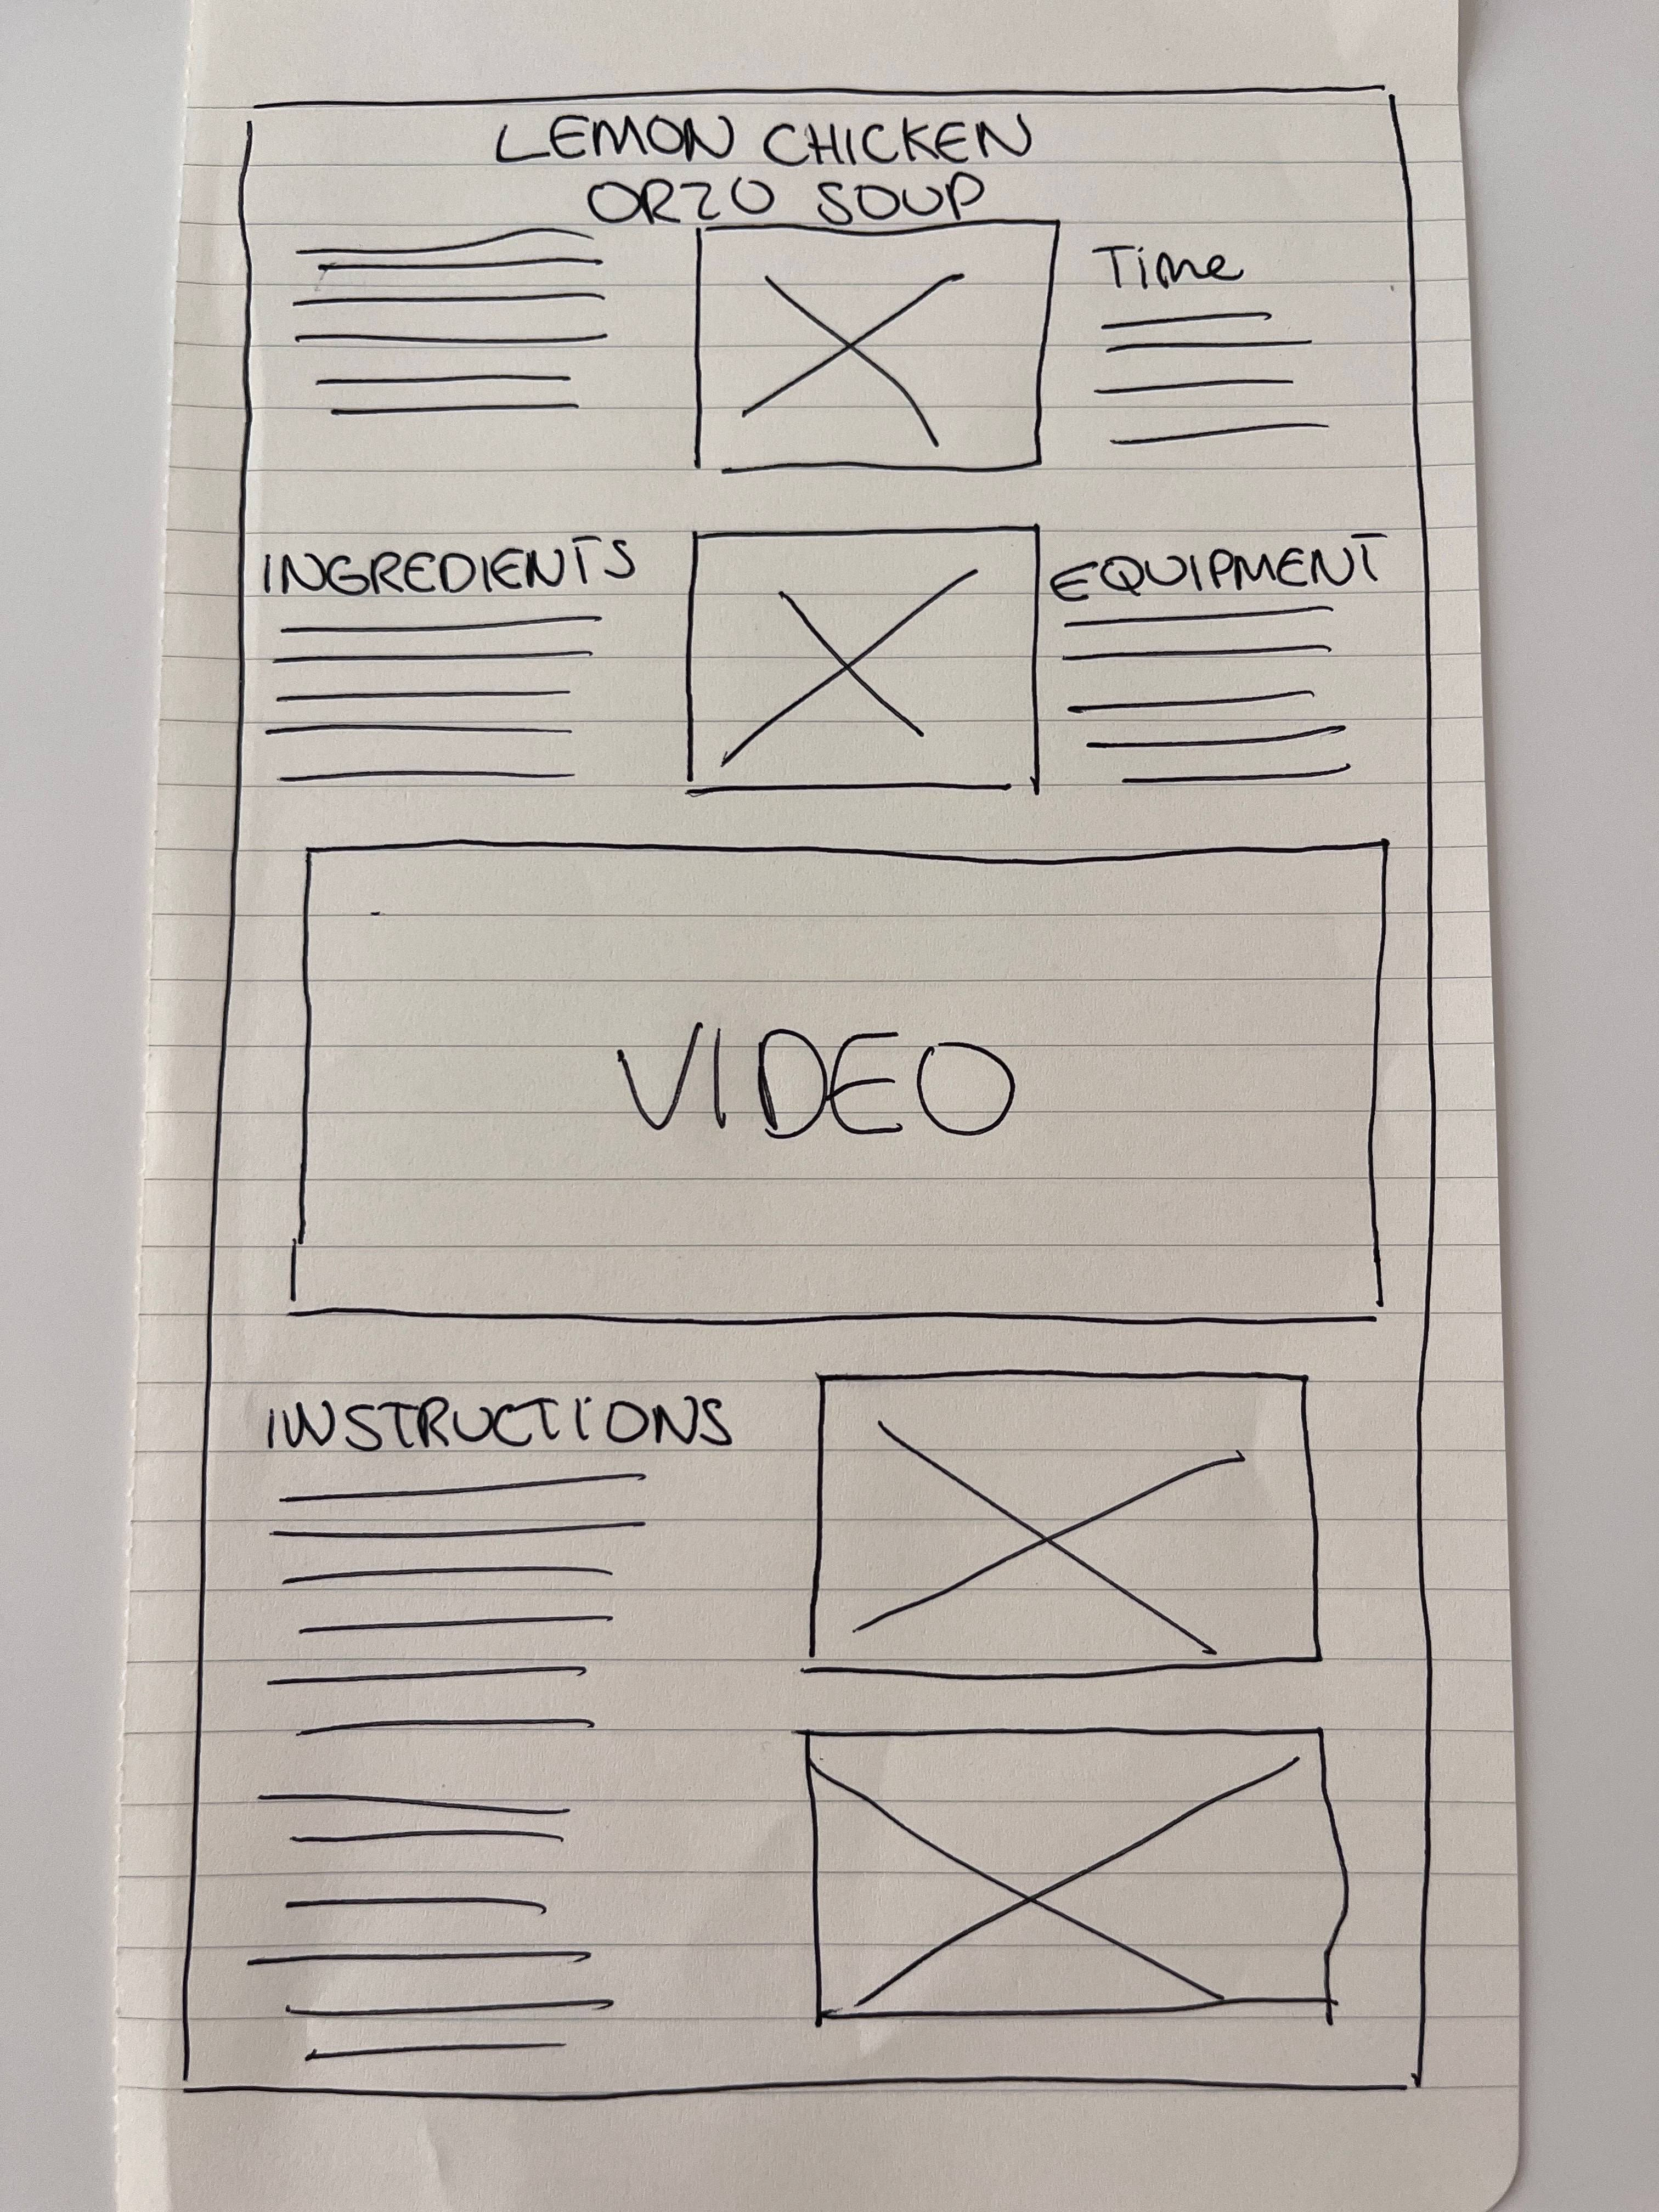 LEMON CHICKEN
ORZO SOUP
Time
INGREDIENTS
EQUIPMENT
VIDEO
INSTRUCTIONS